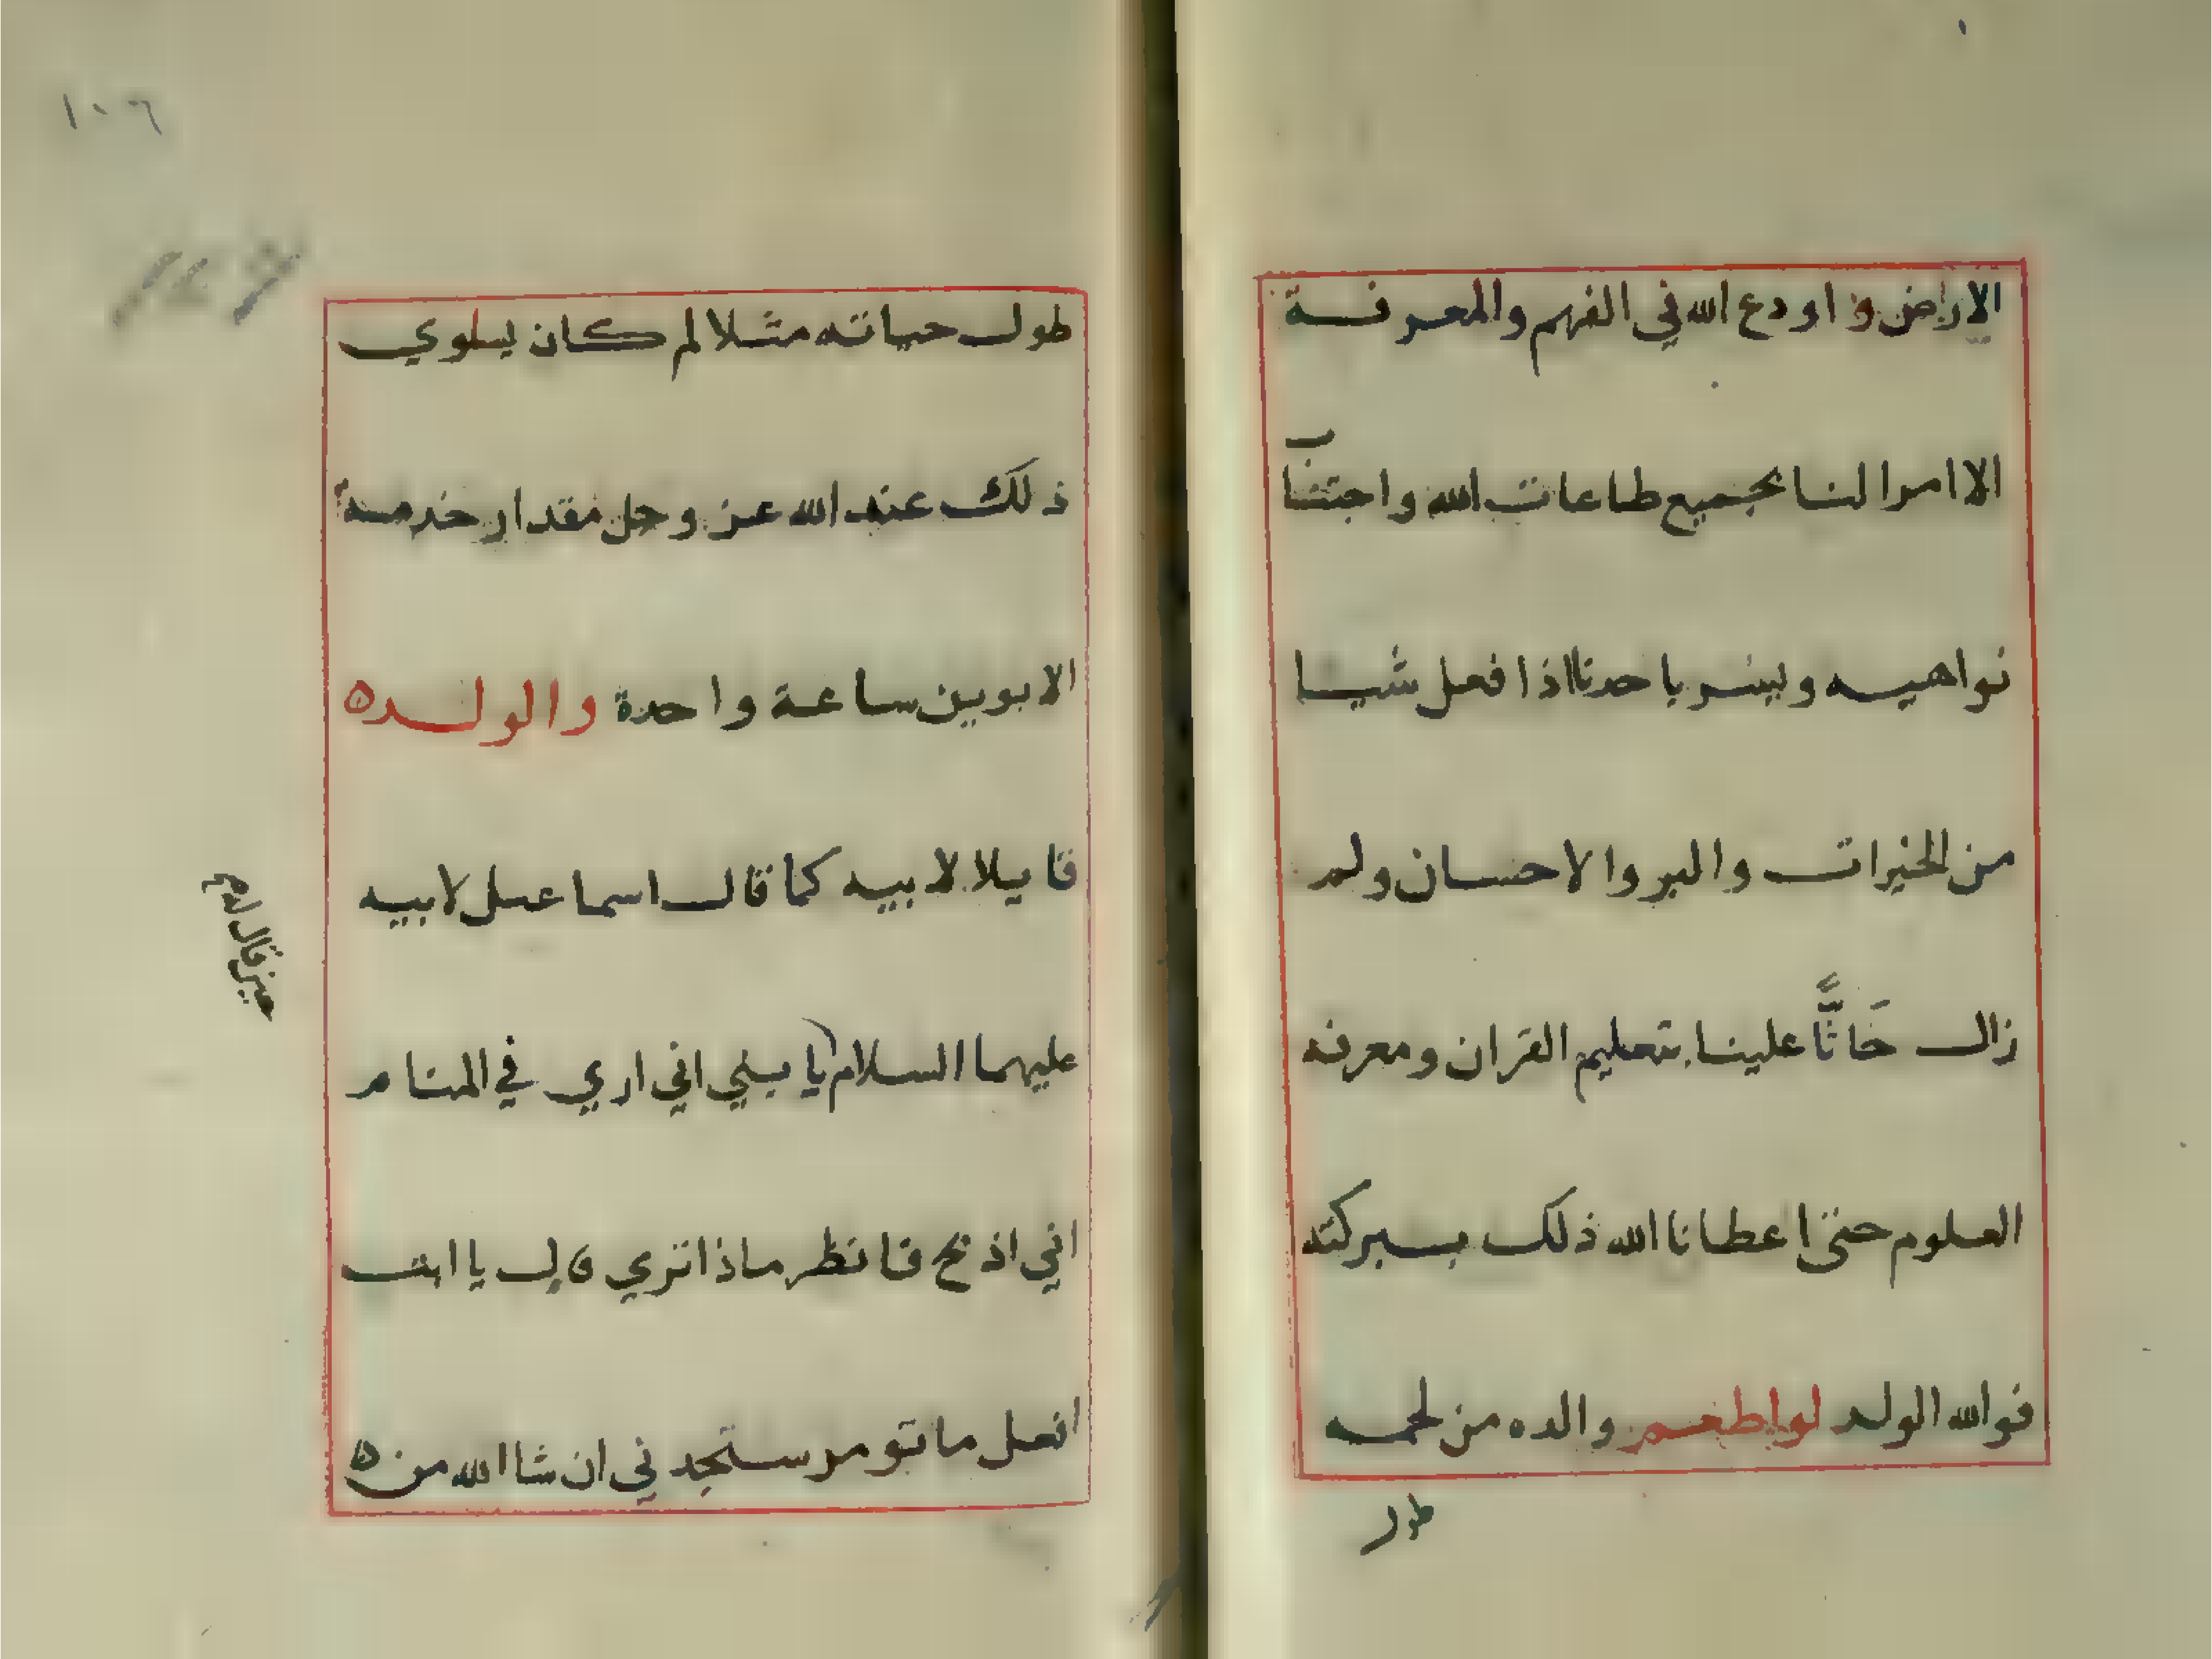 الاراضن و اودع الله في الفهم والمعرفة
الا امرا لنا بجميع طاعات الله واجتناب
نواهيه ويسر باحدنا اذا فعل شيا
من الخيرات والبر والاحسان ولم
زال حَاثًّا علينا بتعليم القران ومعرفه
العلوم حتى اعطانا الله ذلك ببركته
فوالله الولد لو اطعم والده من لحمه
طول
١٠٦
طول حياته مثلا لم كان يسلوي
ذلك عند الله عز وجل مقدار خدمة
الابوين ساعة واحدة والولد ه
قايلا لابيه كما قال اسماعيل لابيه
عليهما السلام يا بني اني اري في المنام
اني اذبحك فانظر ماذا تري قال يا ابت
افعل ما تومر ستجدني ان شا الله من ه
حين قال لهم